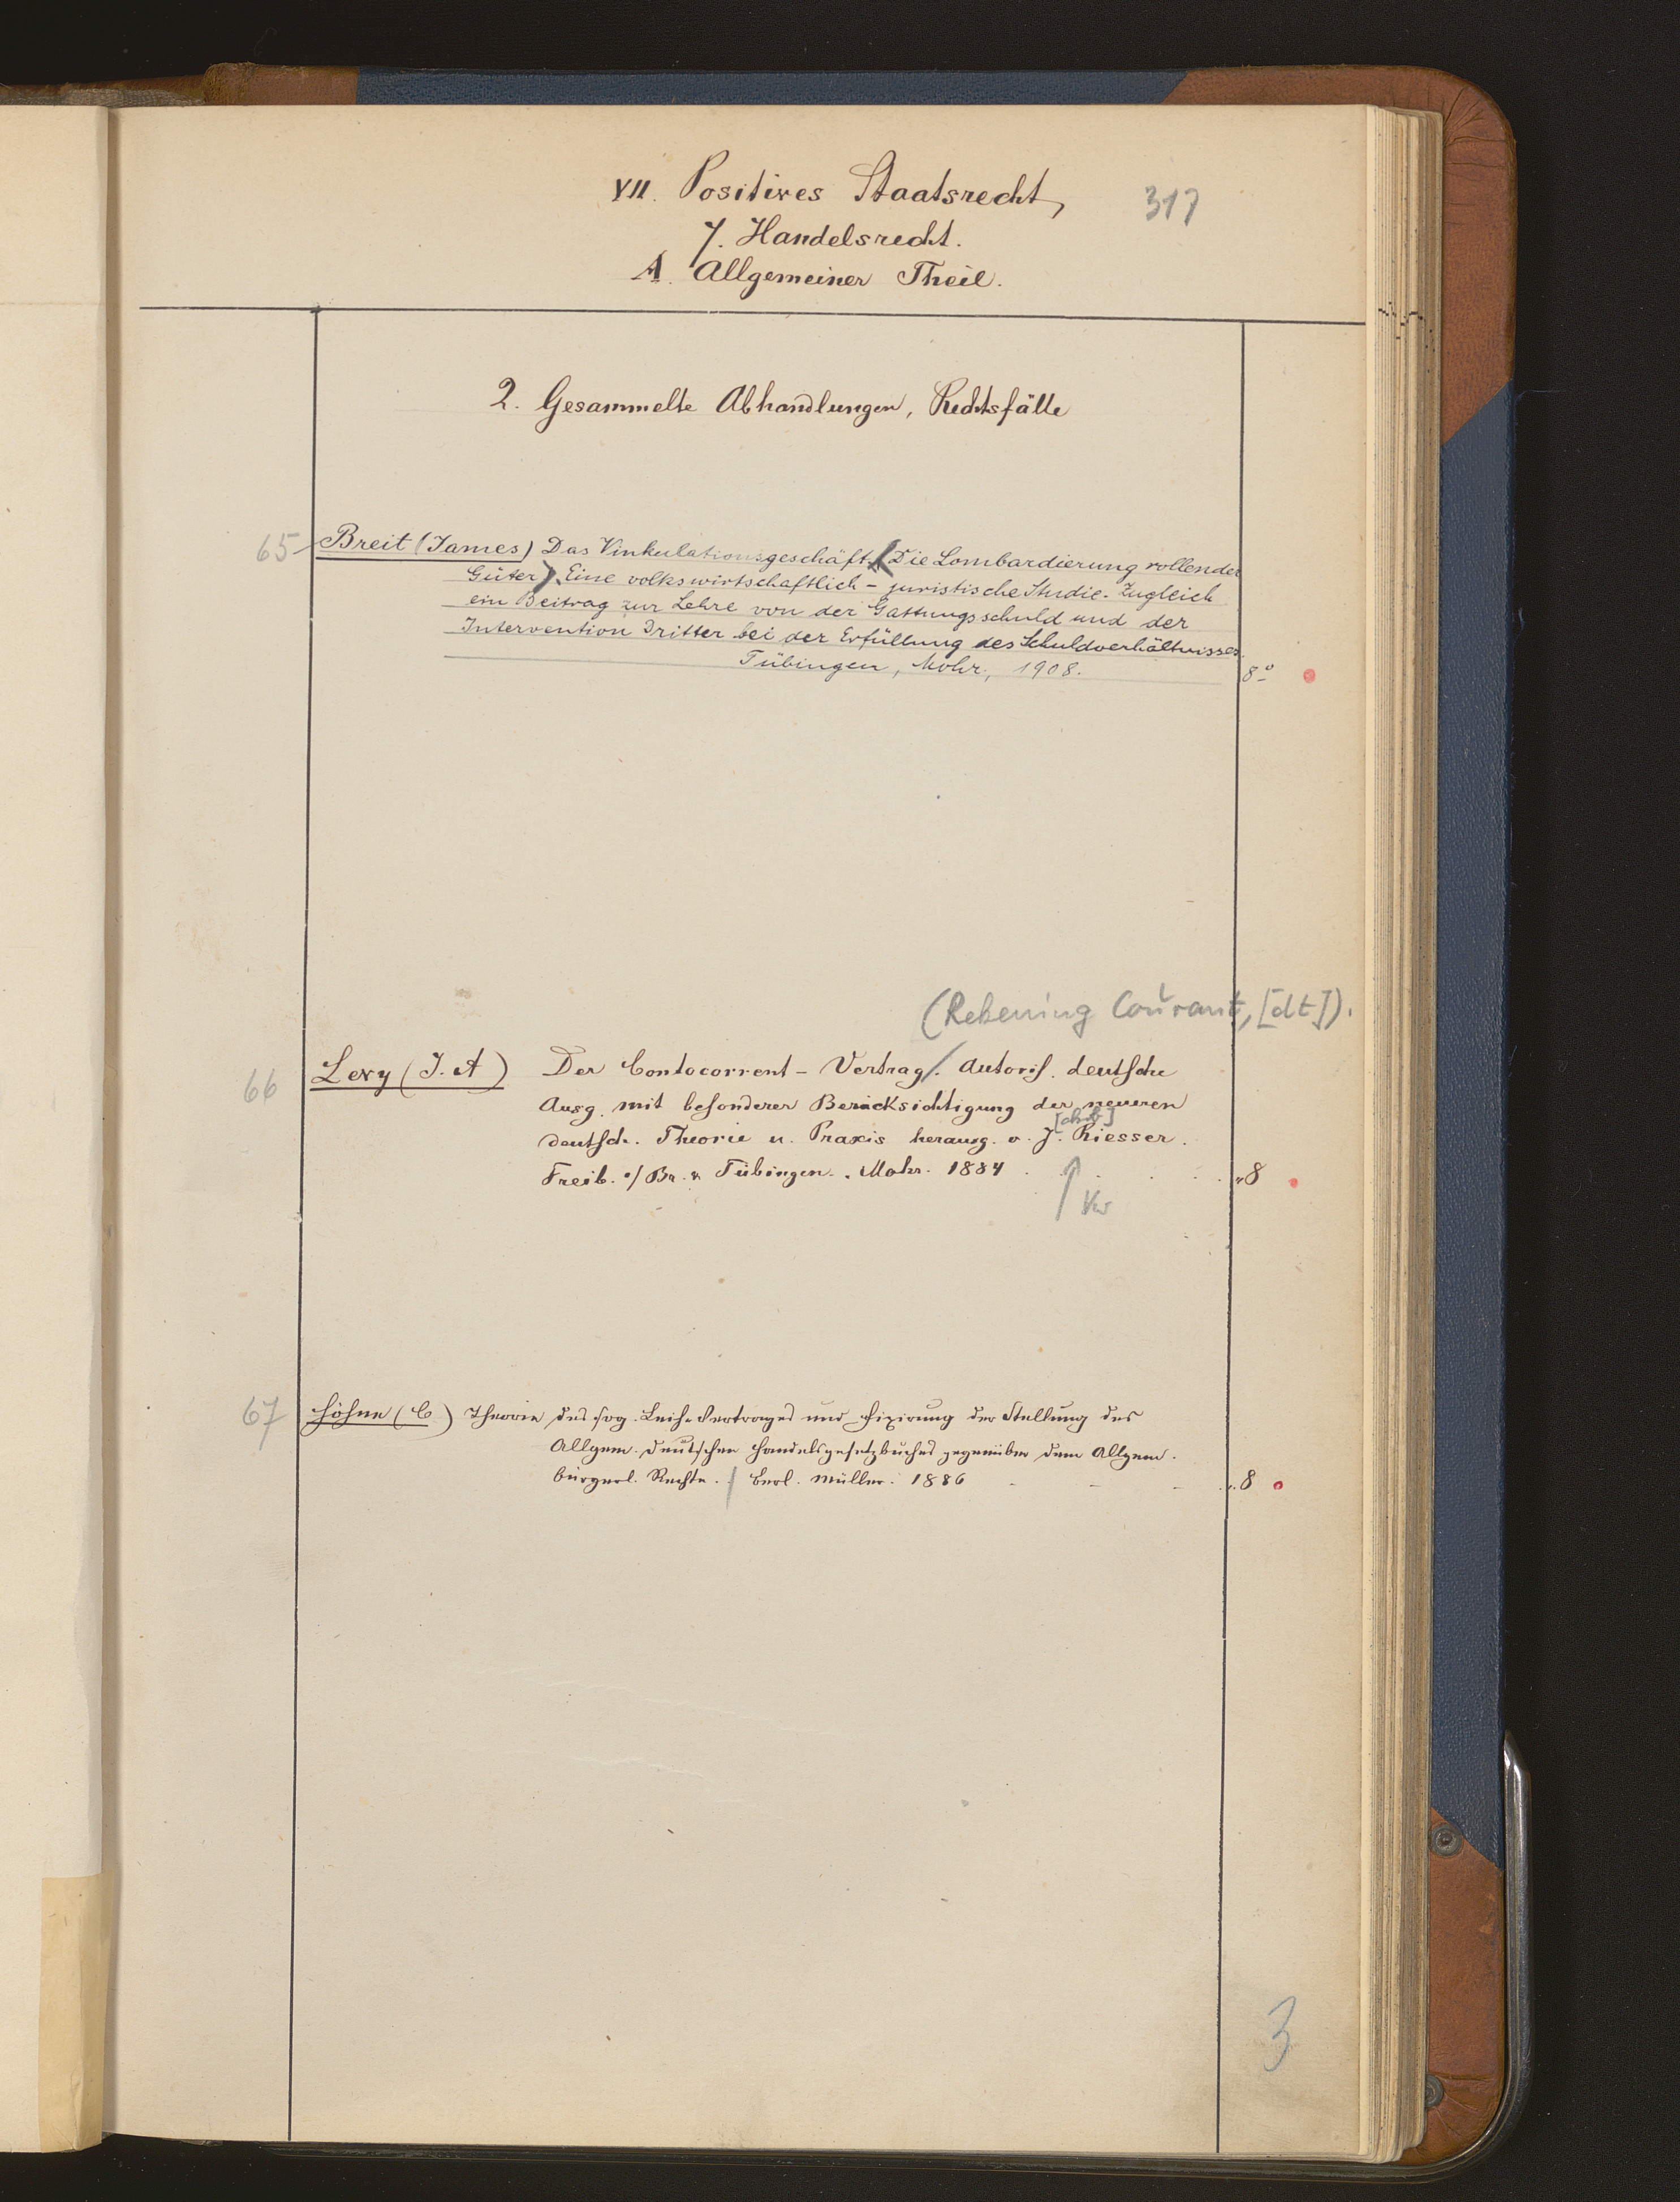 VII. Positives Staatsrecht, 317
7. Handelsrecht.
A. Allgemeiner Theil.
2. Gesammelte Abhandlungen, Rechtsfälle
65 Breit (James) Das Vinkulationsgeschäft. (Die Lombardierung rollender
Güter). Eine volkswirtschaftlich - juristische Studie. Zugleich
ein Beitrag zur Lehre von der Gattungsschuld und der
Intervention Dritter bei der Erfüllung des Schuldverhältnisses.
Tübingen, Mohr, 1908. 8º
(Rekening Courant, [dt]).
66 Levy (J. A) Der Contocorrent - Vertrag /. Autoris. deutsche
Ausg. mit besonderer Berücksichtigung der neueren
deutsch. Theorie u. Praxis herausg. v. J. Riesser.
Freib. i/Br. & Tübingen. Mohr. 1884 „8
67 Höhne (C) Theorie des sog. Leih-Vertrages und Fixirung der Stellung des
Allgem. deutschen Handelsgesetzbuches gegenüber dem Allgem.
bürgerl. Rechte. / Berl. Müller. 1886 „8
3